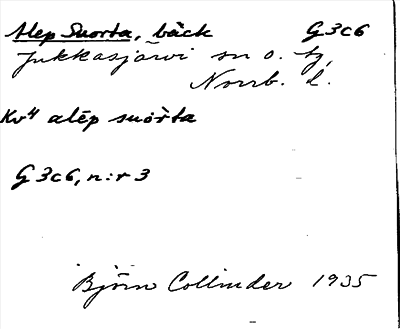 Alep Suorta, bäck G3c6
Jukkasjärvi sn o. tg,
Norrb. l.
Kv4 alēp suorta
G3c6, n:r 3
Björn Collinder 1935